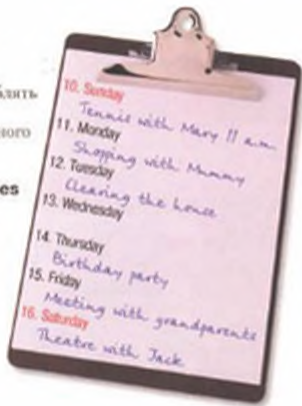 лять
ного
es
10. Sunday
Tennis with Mary 11 a.m.
11. Monday
Shopping with Mummy
12. Tuesday
Clearing the house
13. Wednesday
14. Thursday
Birthday party
15. Friday
Meeting with grandparents
16. Saturday
Theatre with Jack